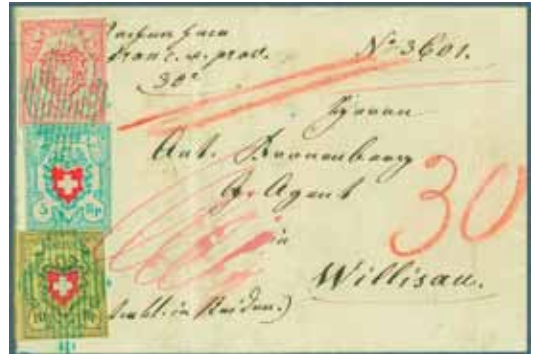 franc. u. prov.
30c
No 3601.
Herrn
Ant. Kronenberg
Agent
in
30
Willisau.
5 Rp
10 Rp
in Reiden.)